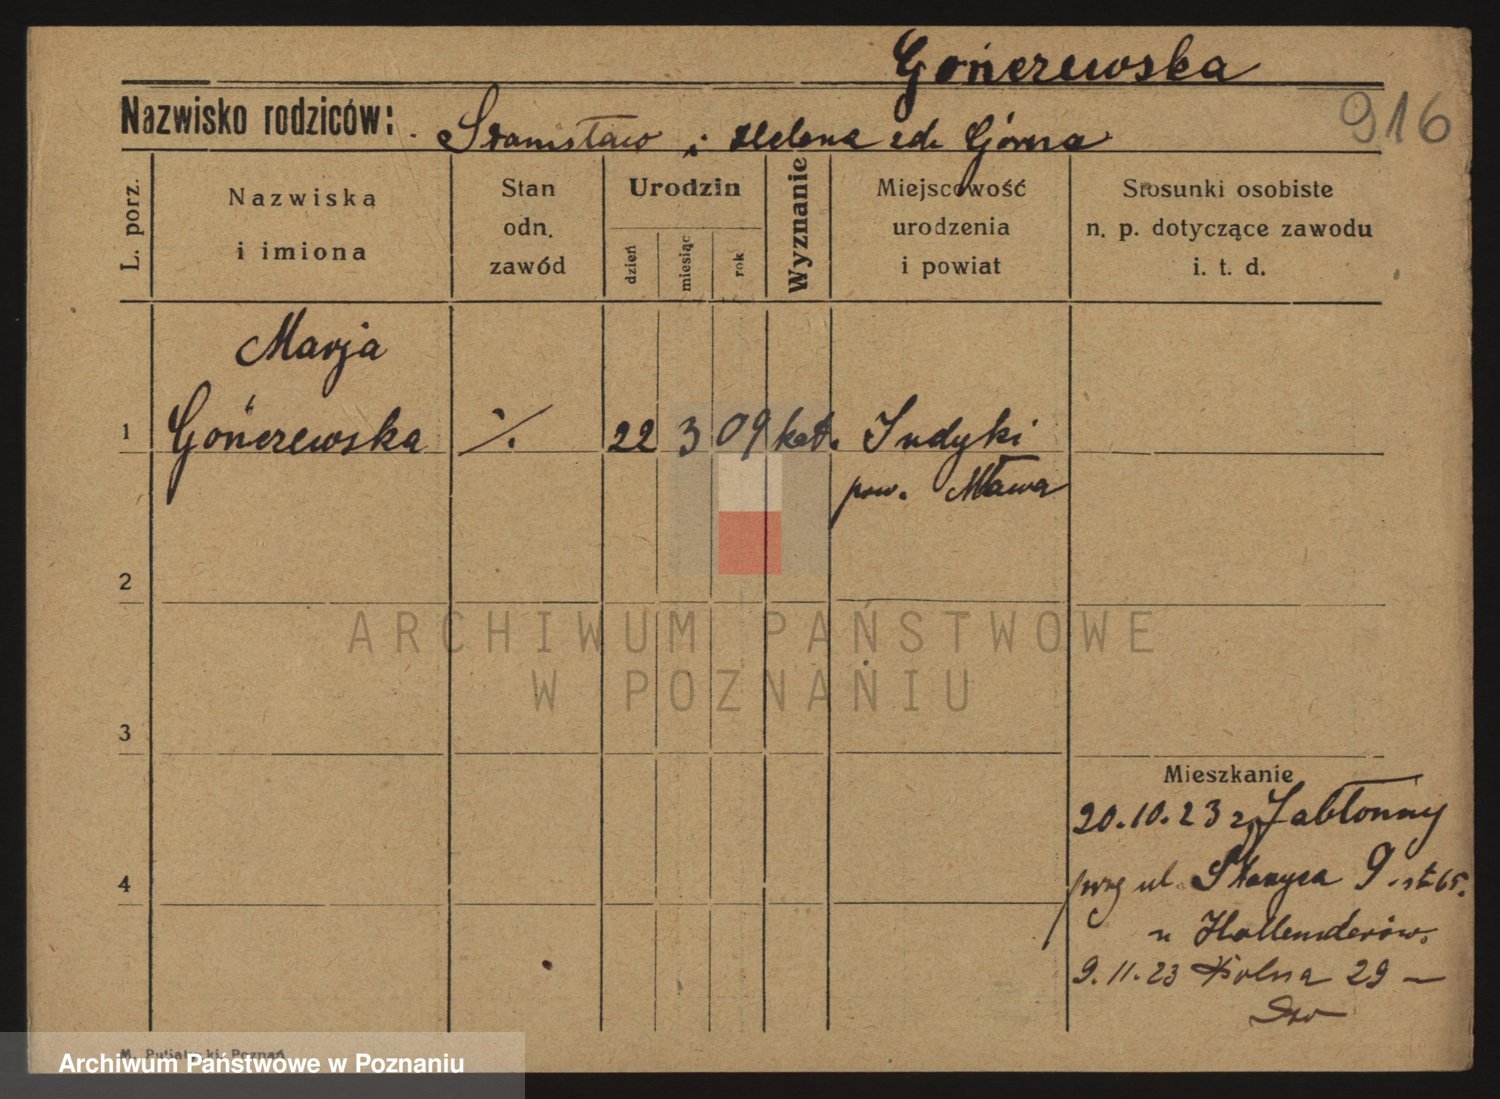 Gończewska
916
Nazwisko rodziców: Stanisław i Helena zd. Górna
L. porz.
Nazwiska
i imiona
Stan
odn.
zawód
Urodzin
dzień
miesiąc
rok
Wyznanie
Miejscowość
urodzenia
i powiat
Stosunki osobiste
n. p. dotyczące zawodu
i. t. d.
Marja
1 Gończewska ./. 22 3 09 kat. Indyki
pow. Mława
2
ARCHIWUM PAŃSTWOWE
W POZNANIU
3
Mieszkanie
20.10.23 z Jabłonny
przy ul. 9. st. 65.
4
u Hollenderów.
9.11.23 Polna 29 –
Archiwum Państwowe w Poznaniu